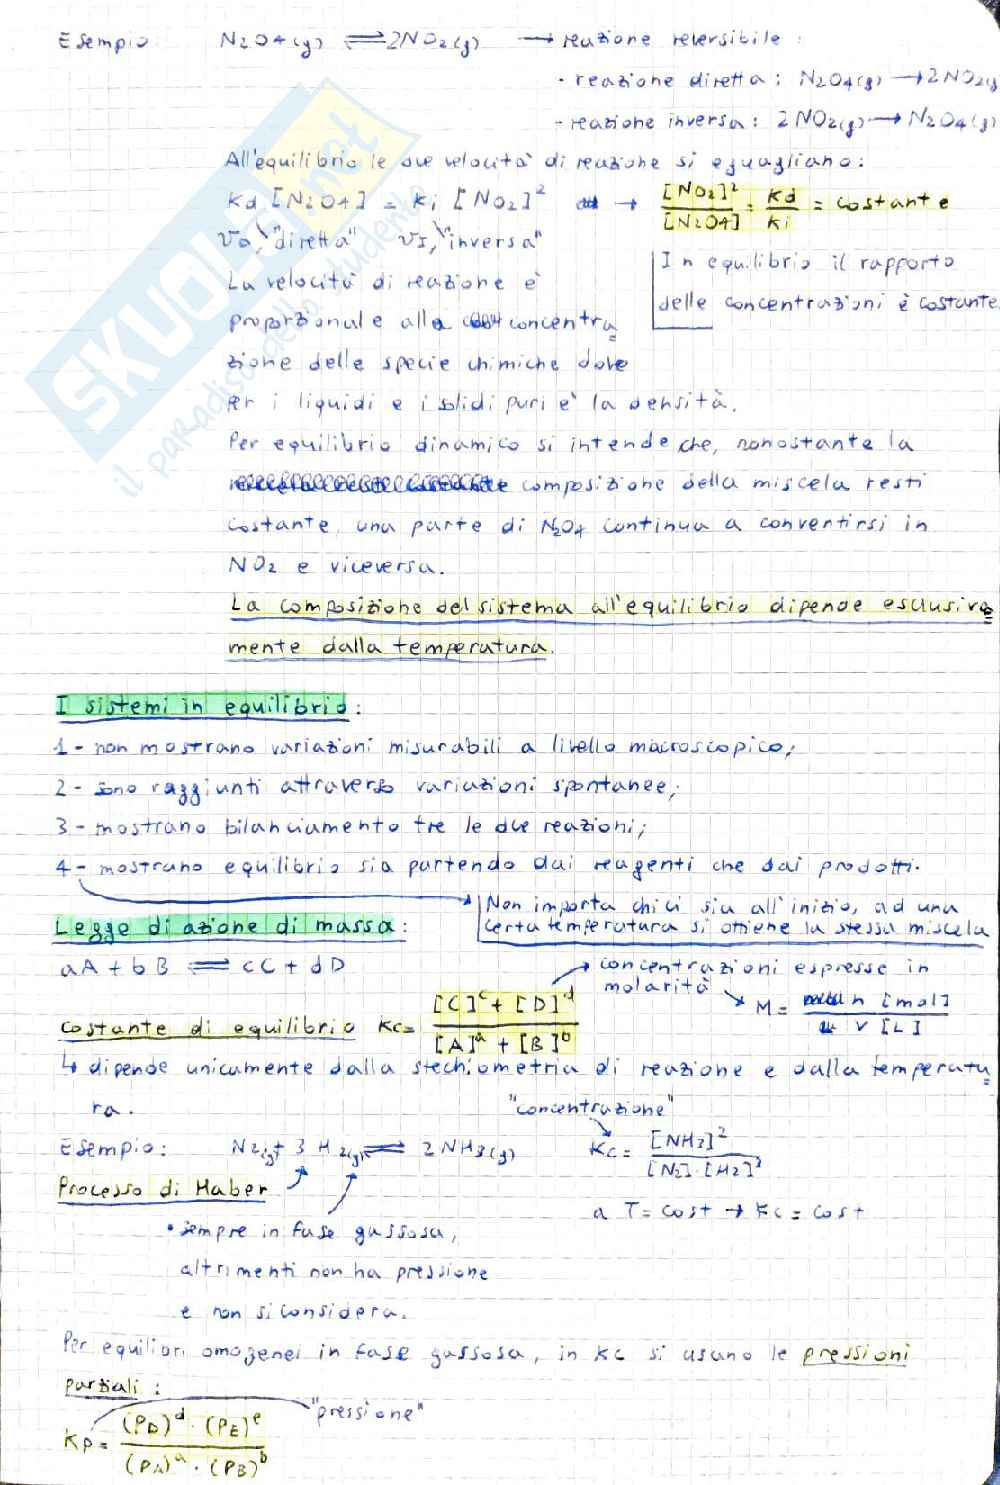 Esempio: N2O4(g) ⇌ 2NO2(g) → reazione reversibile:
· reazione diretta: N2O4(g) → 2NO2(g
- reazione inversa: 2NO2(g) → N2O4(g)
All'equilibrio le due velocità di reazione si eguagliano:
Kd [N2O4] = Ki [NO2]² → [NO2]²/[N2O4] = Kd/Ki = costante
VD, "diretta" VI, "inversa"
In equilibrio il rapporto
delle concentrazioni è costante.
La velocità di reazione è
proporzionale alla concentra
zione delle specie chimiche dove
per i liquidi e i solidi puri e' la densità.
Per equilibrio dinamico si intende che, nonostante la
composizione della miscela resti
costante, una parte di N2O4 continua a convertirsi in
NO2 e viceversa.
La composizione del sistema all'equilibrio dipende esclusiva
mente dalla temperatura.
I sistemi in equilibrio:
1 - non mostrano variazioni misurabili a livello macroscopico;
2 - sono raggiunti attraverso variazioni spontanee;
3 - mostrano bilanciamento tre le due reazioni;
4 - mostrano equilibrio sia partendo dai reagenti che dai prodotti.
Non importa chi ci sia all'inizio, ad una
certa temperatura si ottiene la stessa miscela
Legge di azione di massa:
aA + bB ⇌ cC + dD
concentrazioni espresse in
molarità → M = n [mol] / V [L]
costante di equilibrio Kc = [C]^c + [D]^d / [A]^a + [B]^b
↳ dipende unicamente dalla stechiometria di reazione e dalla temperatu
ra.
"concentrazione"
Esempio: N2(g) + 3 H2(g) ⇌ 2 NH3(g) Kc = [NH3]² / [N2]·[H2]³
Processo di Haber
a T = cost → Kc = cost
• sempre in fase gassosa,
altrimenti non ha pressione
e non si considera.
Per equilibri omogenei in fase gassosa, in Kc si usano le pressioni
parziali:
"pressione"
Kp = (PD)^d · (PE)^e / (PA)^a · (PB)^b
SKUOLA.net
il paradiso dello studente